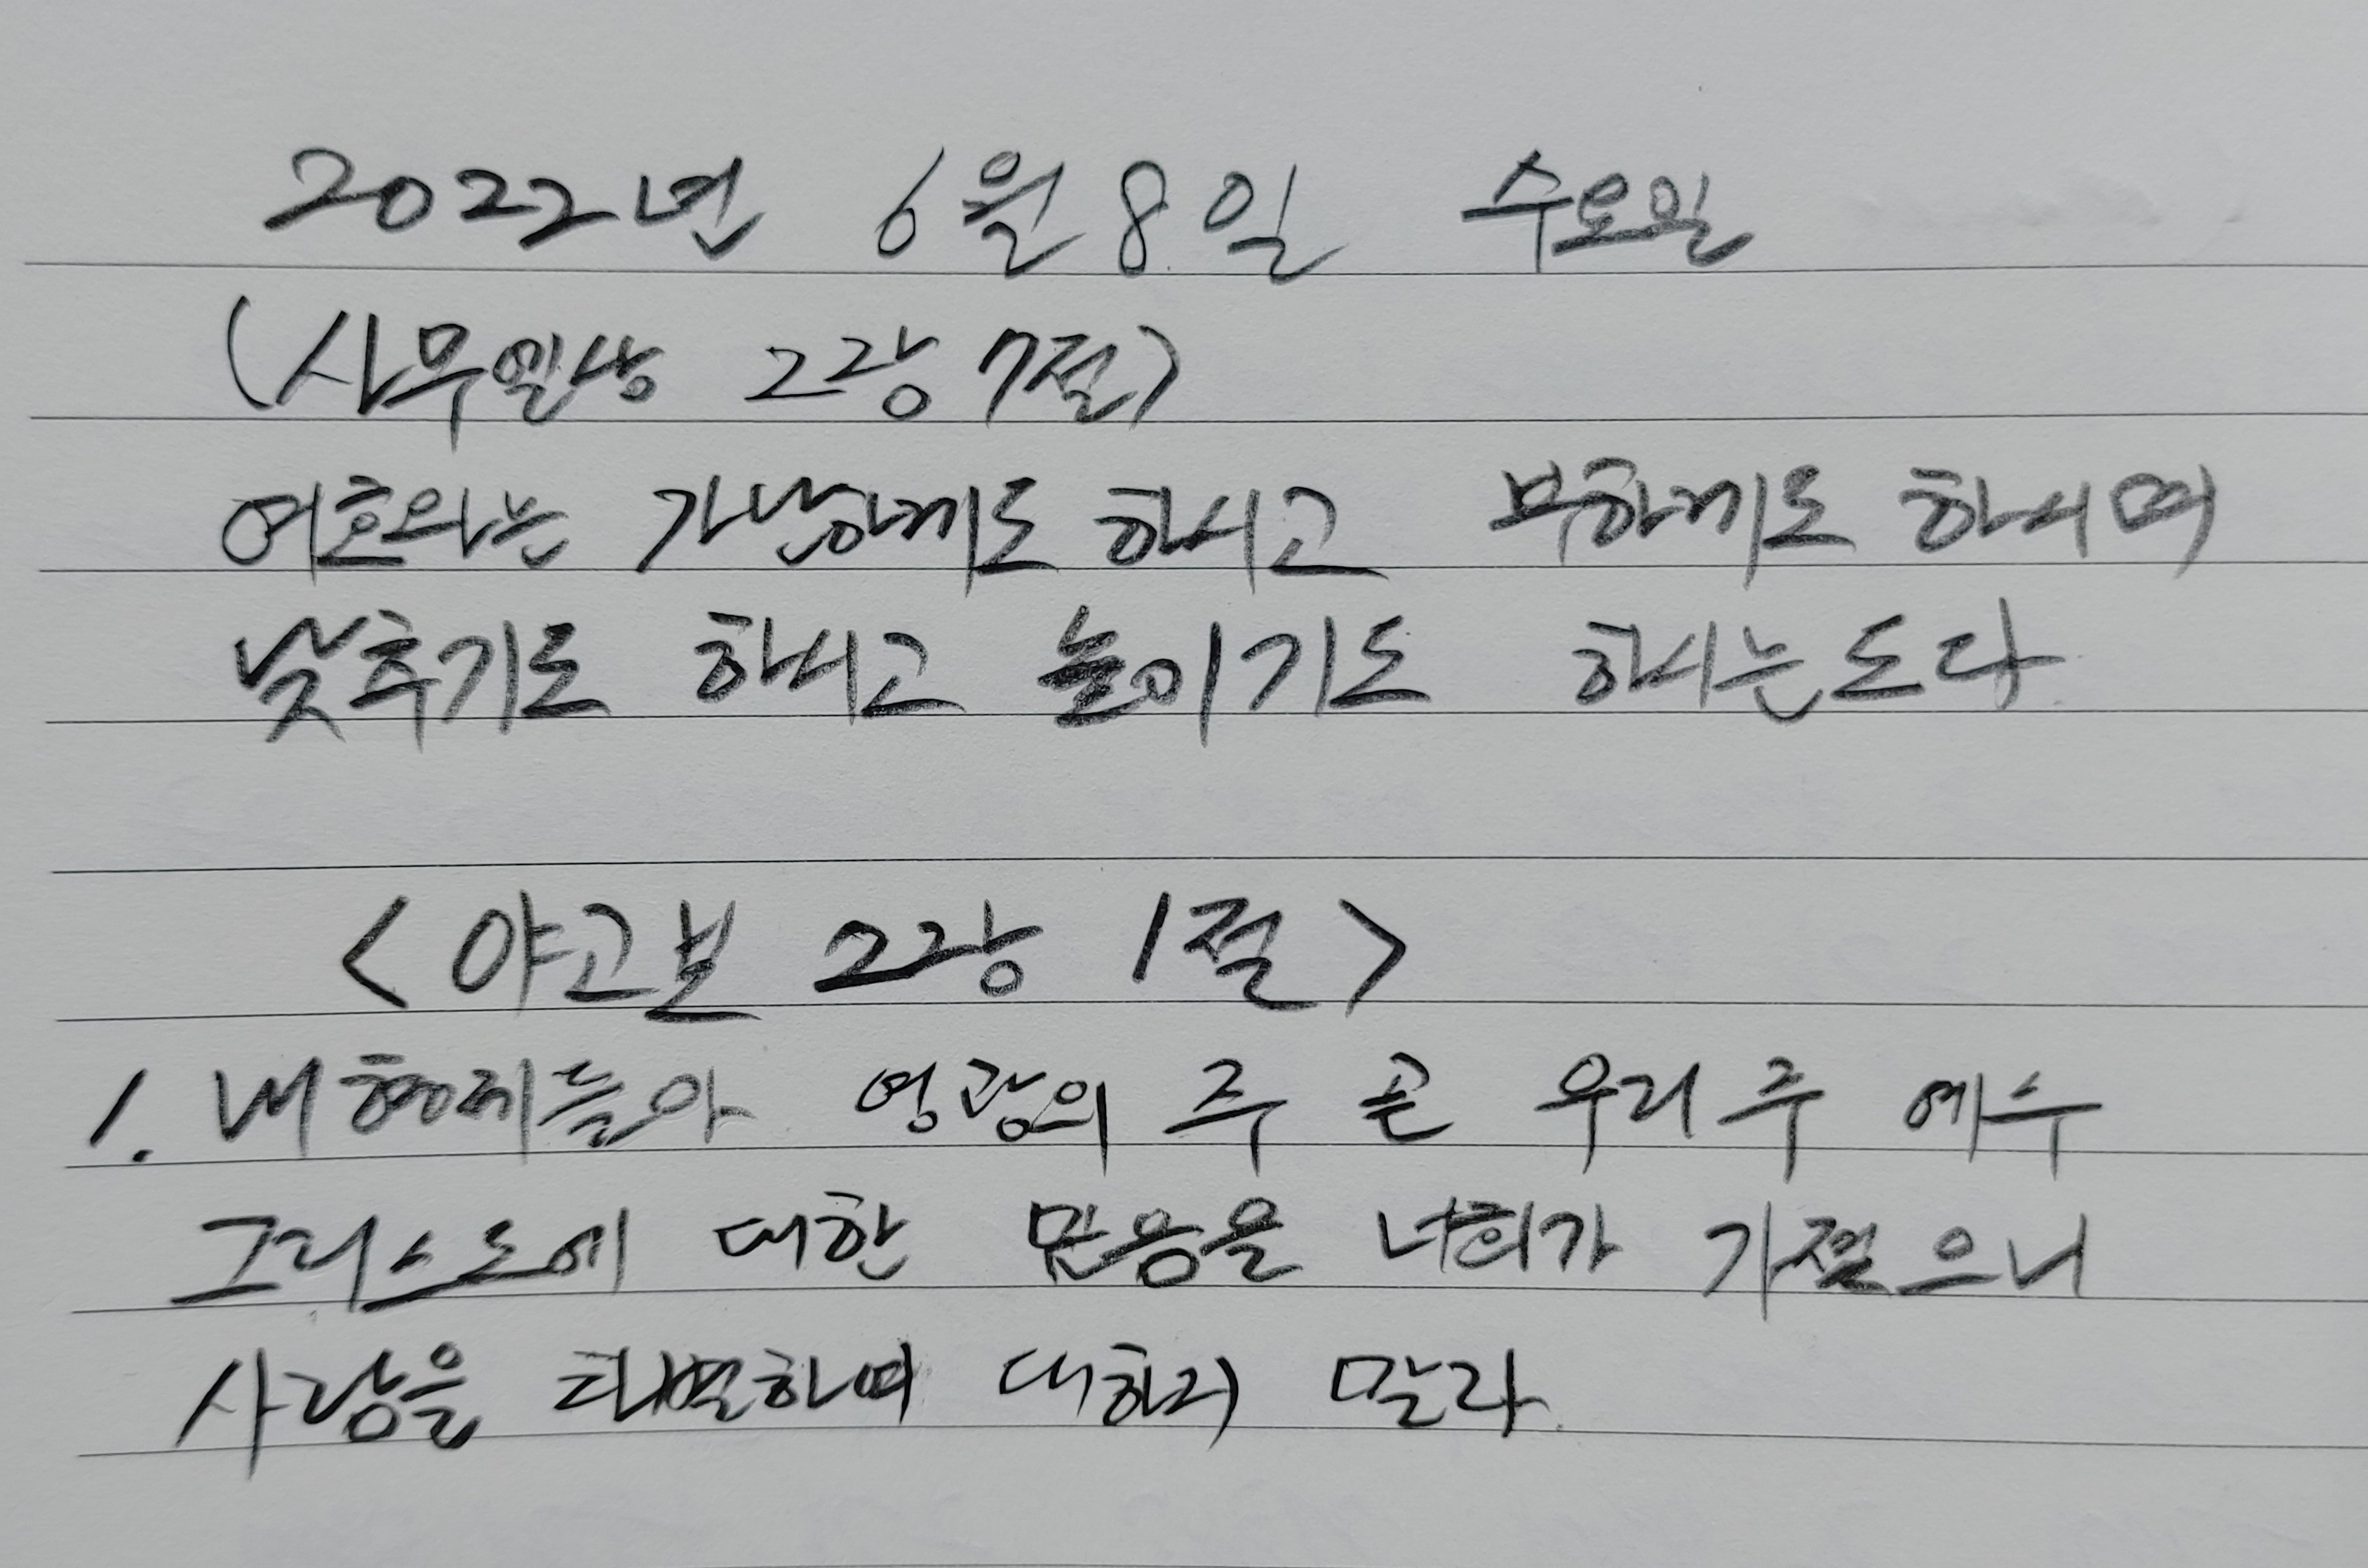 2022년 6월 8일 수요일
(사무엘상 2장 7절)
여호와는 가난하게도 하시고 부하게도 하시며
낮추기도 하시고 높이기도 하시는도다
<야고보 2장 1절>
1. 내 형제들아 영광의 주 곧 우리 주 예수
그리스도에 대한 믿음을 너희가 가졌으니
사람을 차별하여 대하지 말라.